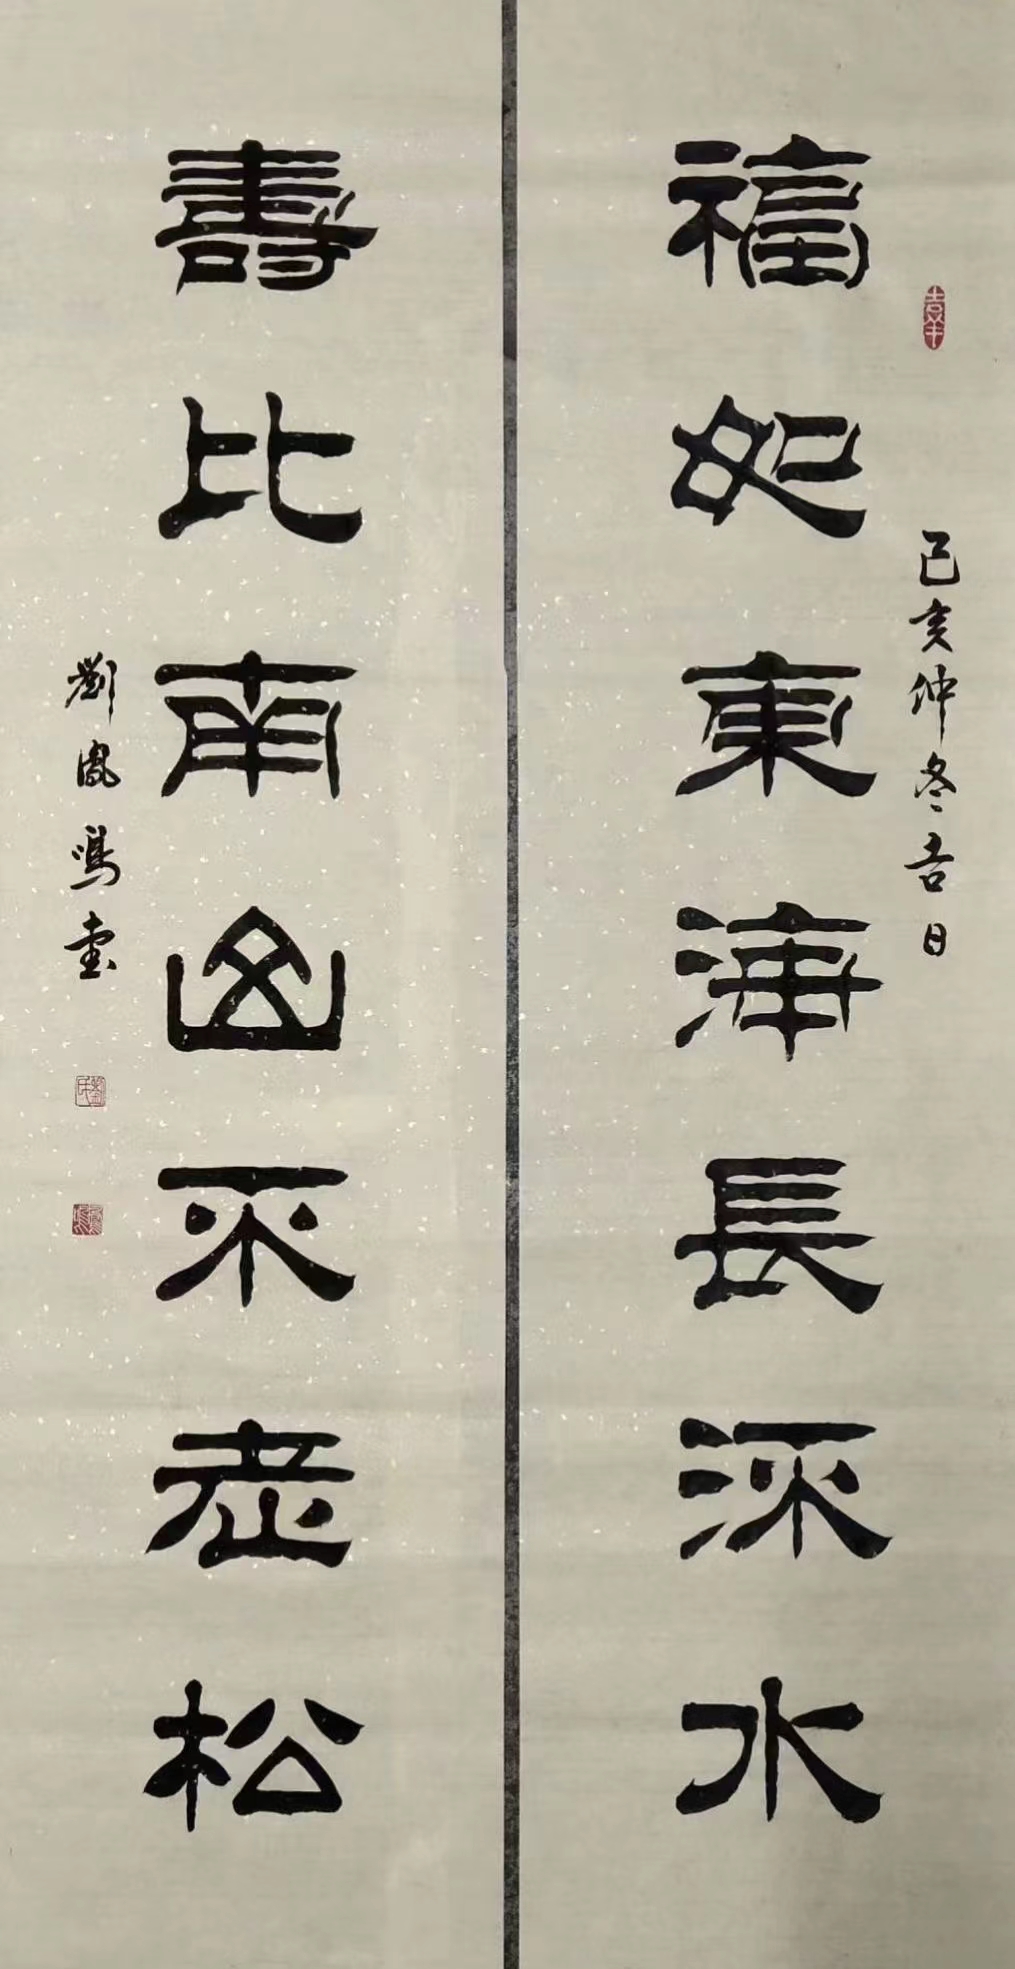 福如東海長流水
己亥仲冬吉日
壽比南山不老松
劉鳳鳴書